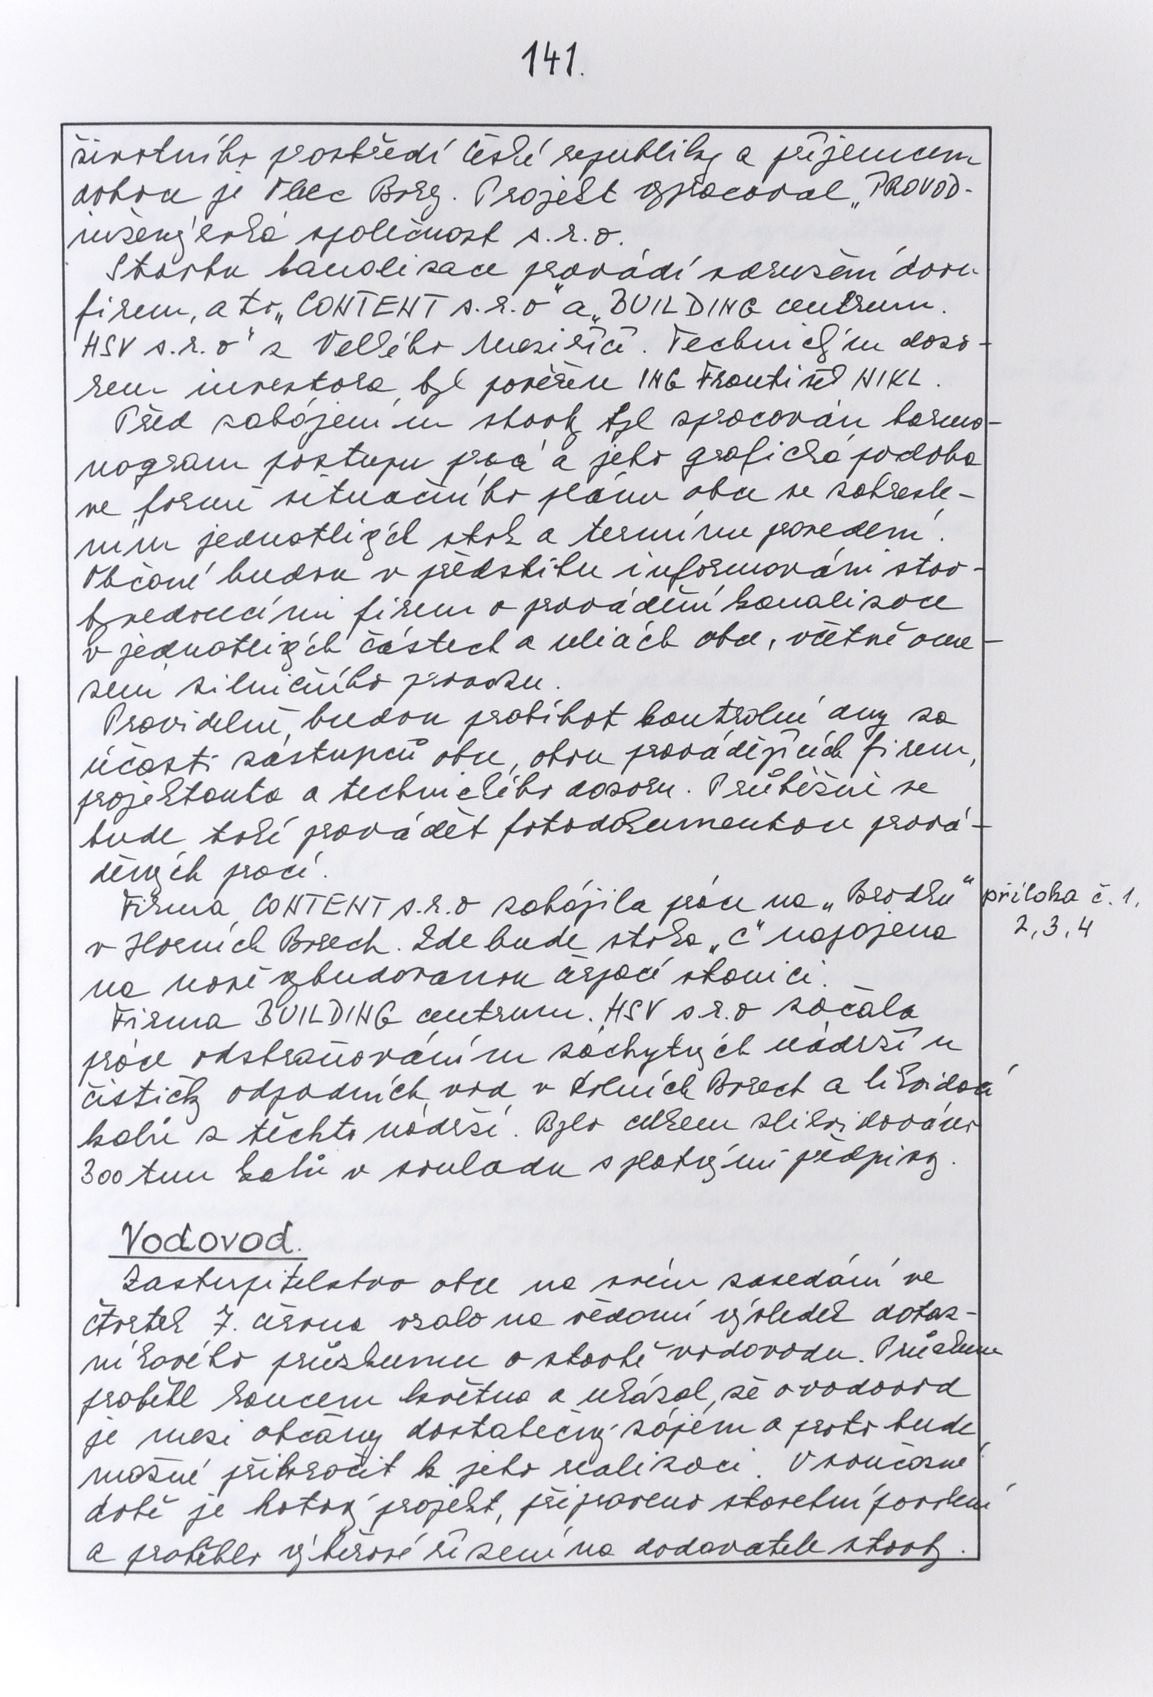 141.
životního prostředí České republiky a příjemcem
dotace je Obec Bory. Projekt vypracoval „PROVOD-
inženýrská společnost s.r.o.
Stavbu kanalizace provádí sdružení dvou
firem, a to „CONTENT s.r.o" a „BUILDING centrum.
HSV s.r.o" z Velkého Meziříčí. Technickým dozo-
rem investora byl pověřen ING František NIKL.
Před zahájením stavby byl zpracován harmo-
nogram postupu prací a jeho grafická podoba
ve formě situačního plánu obce se zakresle-
ním jednotlivých stok a termínu provedení.
Občané budou v předstihu informováni stav-
byvedoucími firem o provádění kanalizace
v jednotlivých částech a ulicích obce, včetně ome-
zení silničního provozu.
Pravidelně budou probíhat kontrolní dny za
účasti zástupců obce, obou provádějících firem,
projektanta a technického dozoru. Průběžně se
bude také provádět fotodokumentace prová-
děných prací.
Firma CONTENT s.r.o zahájila práce na „Brodku"
příloha č. 1,
2, 3, 4
v Horních Borech. Zde bude stoka „C" napojena
na nově vybudovanou čerpací stanici.
Firma BUILDING centrum. HSV s.r.o začala
práce odstraňováním záchytných nádrží u
čističky odpadních vod v Dolních Borech a likvidací
kalů z těchto nádrží. Bylo celkem zlikvidováno
300 tun kalů v souladu s platnými předpisy.
Vodovod.
Zastupitelstvo obce na svém zasedání ve
čtvrtek 7. června vzalo na vědomí výsledek dotaz-
níkového průzkumu o stavbě vodovodu. Průzkum
proběhl koncem května a ukázal, že o vodovod
je mezi občany dostatečný zájem a proto bude
možné přikročit k jeho realizaci. V současné
době je hotový projekt, připraveno stavební povolení
a proběhlo výběrové řízení na dodavatele stavby.